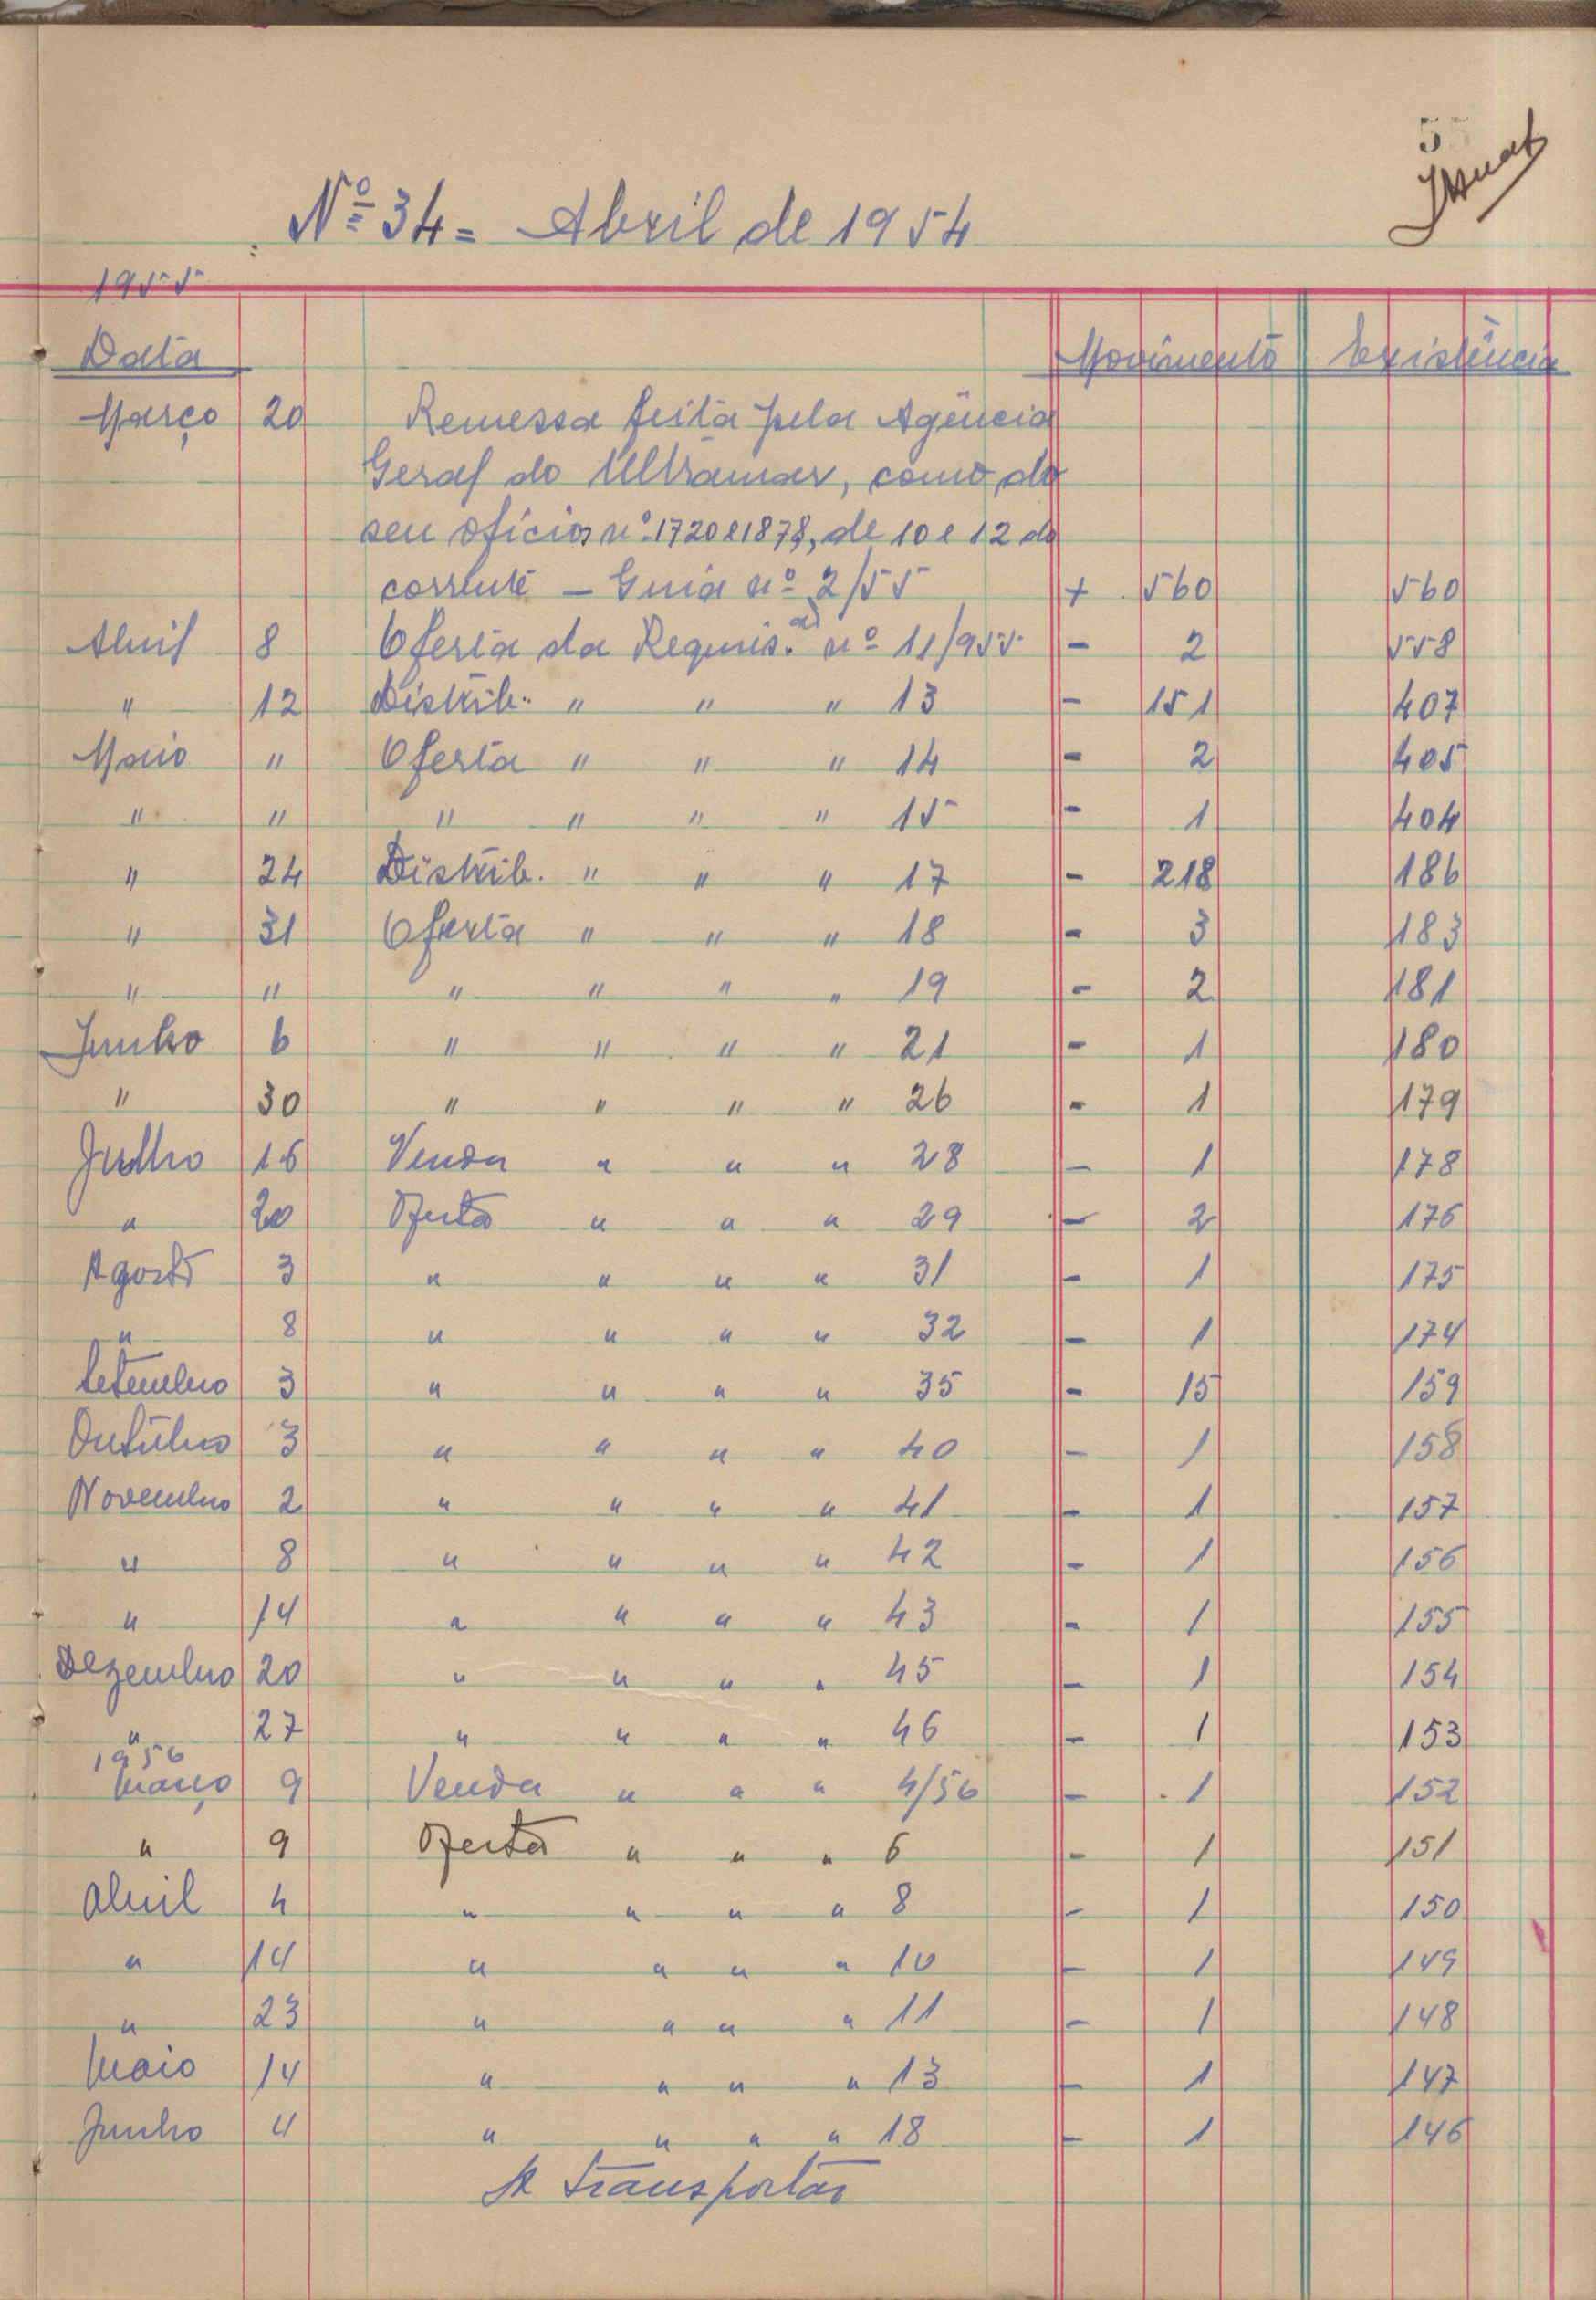 55
Nº 34 = Abril de 1954
1955
Data Movimento Existência
Março 20 Remessa feita pela Agência
Geral do Ultramar, como do
seu ofícios nº 1720 e 1878, de 10 e 12 do
corrente — Guia nº 2/55 + 560 560
Abril 8 Oferta da Requis.ão nº 11/955 - 2 558
" 12 Distrib. " " " 13 - 151 407
Maio " Oferta " " " 14 - 2 405
" " " " " " 15 - 1 404
" 24 Distrib. " " " 17 - 218 186
" 31 Oferta " " " 18 - 3 183
" " " " " " 19 - 2 181
Junho 6 " " " " 21 - 1 180
" 30 " " " " 26 - 1 179
Julho 16 Venda " " " 28 - 1 178
" 20 Oferta " " " 29 - 2 176
Agosto 3 " " " " 31 - 1 175
" 8 " " " " 32 - 1 174
Setembro 3 " " " " 35 - 15 159
Outubro 3 " " " " 40 - 1 158
Novembro 2 " " " " 41 - 1 157
" 8 " " " " 42 - 1 156
" 14 " " " " 43 - 1 155
Dezembro 20 " " " " 45 - 1 154
" 27 " " " " 46 - 1 153
1956
Março 9 Venda " " " 4/56 - 1 152
" 9 Oferta " " " 6 - 1 151
Abril 4 " " " " 8 - 1 150
" 14 " " " " 10 - 1 149
" 23 " " " " 11 - 1 148
Maio 14 " " " " 13 - 1 147
Junho 4 " " " " 18 - 1 146
A transportar